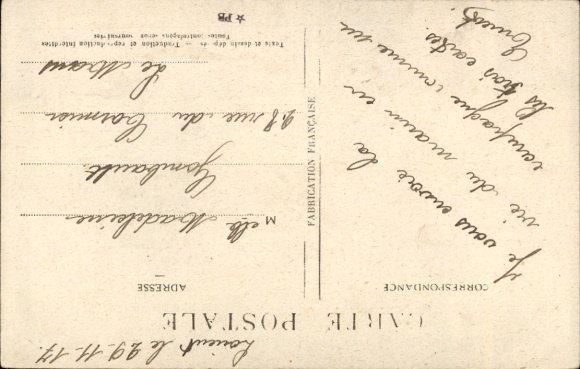 Lorient le 29-11-17
CARTE POSTALE
CORRESPONDANCE
Je vous envoie la
vie du marin en
campagne comme sur
les trois cartes
Ernest
FABRICATION FRANÇAISE
ADRESSE
Melle Madeleine
Gombault
28 rue du Cormier
Le Mans
Texte et dessin déposés — Traduction et reproduction interdites
Toutes contrefaçons seront poursuivies
★ PB